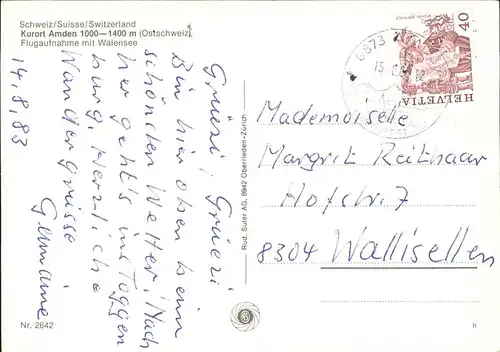 Schweiz/Suisse/Switzerland
Kurort Amden 1000—1400 m (Ostschweiz)
Flugaufnahme mit Walensee
14.8.83
Grüezi, Grüezi
Bin hier oben beim
schönsten Wetter! Nach
her geht's ins Toggen
burg. Herzliche
Wandergrüsse
Germaine
Nr. 2642
Rud. Suter AG, 8942 Oberrieden-Zürich
8873
15.
12
40
HELVETIA
Mademoiselle
Margrit Reithaar
Hofstr. 7
8304 Wallisellen
h